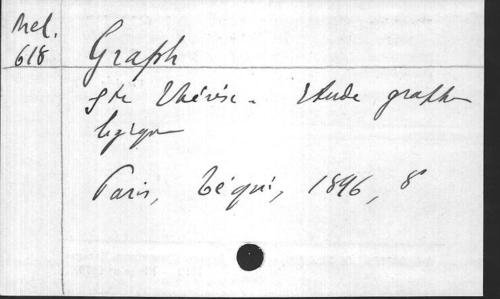 Mel.
618
Graph
Ste Thérèse. Etude grapho
logique
Paris, Téqui, 1896, 8°